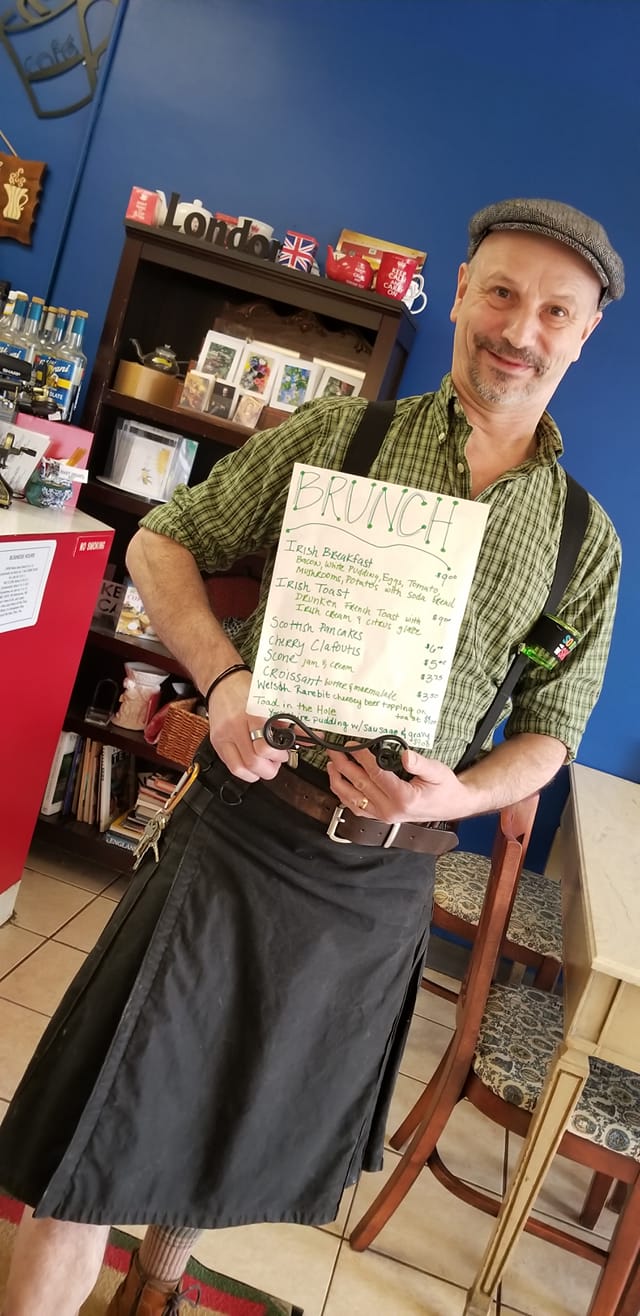 café
London
KEEP
CALM
AND
CARRY
ON
NO SMOKING
BUSINESS HOURS
BRUNCH
Irish Breakfast $9.00
Bacon, White Pudding, Eggs, Tomato,
Mushrooms, Potatoes with Soda Bread
Irish Toast $9.00
Drunken French Toast with
Irish cream & citrus glaze
Scottish Pancakes $6.00
Cherry Clafoutis $5.00
Scone jam & cream $3.75
Croissant butter & marmalade $3.50
Welsh Rarebit cheesey beer topping on
toast
Toad in the Hole
Yorkshire pudding w/ Sausage & gravy
ENGLAND